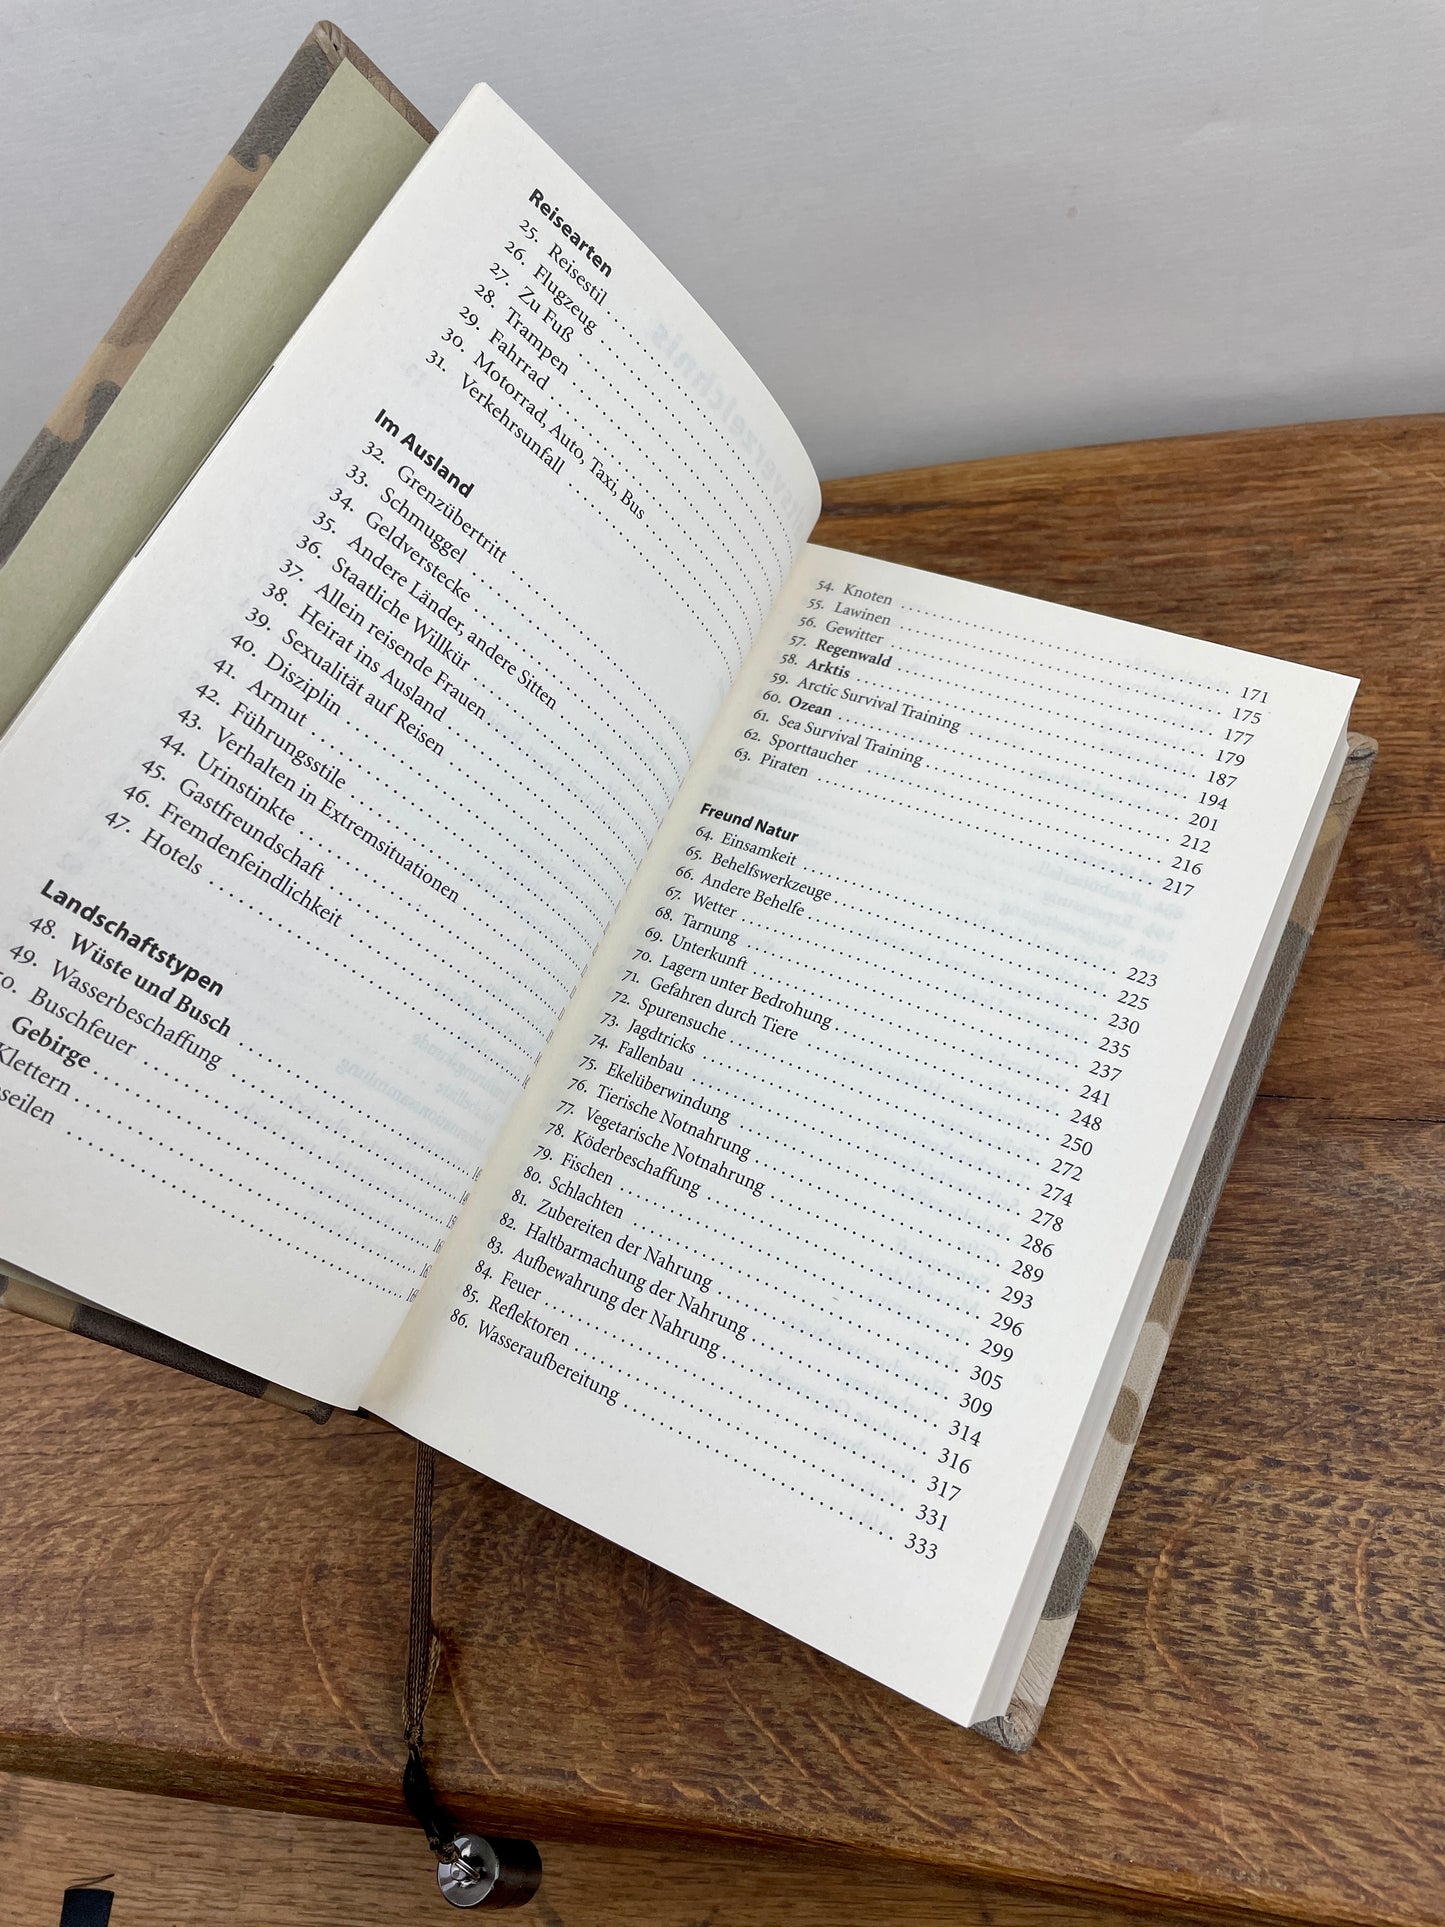 Reisearten
25. Reisestil
26. Flugzeug
27. Zu Fuß
28. Trampen
29. Fahrrad
30. Motorrad, Auto, Taxi, Bus
31. Verkehrsunfall
Im Ausland
32. Grenzübertritt
33. Schmuggel
34. Geldverstecke
35. Andere Länder, andere Sitten
36. Staatliche Willkür
37. Allein reisende Frauen
38. Heirat ins Ausland
39. Sexualität auf Reisen
40. Disziplin
41. Armut
42. Führungsstile
43. Verhalten in Extremsituationen
44. Urinstinkte
45. Gastfreundschaft
46. Fremdenfeindlichkeit
47. Hotels
Landschaftstypen
48. Wüste und Busch
49. Wasserbeschaffung
0. Buschfeuer
Gebirge
Klettern
seilen
54. Knoten 171
55. Lawinen 175
56. Gewitter 177
57. Regenwald 179
58. Arktis 187
59. Arctic Survival Training 194
60. Ozean 201
61. Sea Survival Training 212
62. Sporttaucher 216
63. Piraten 217
Freund Natur
64. Einsamkeit 223
65. Behelfswerkzeuge 225
66. Andere Behelfe 230
67. Wetter 235
68. Tarnung 237
69. Unterkunft 241
70. Lagern unter Bedrohung 248
71. Gefahren durch Tiere 250
72. Spurensuche 272
73. Jagdtricks 274
74. Fallenbau 278
75. Ekelüberwindung 286
76. Tierische Notnahrung 289
77. Vegetarische Notnahrung 293
78. Köderbeschaffung 296
79. Fischen 299
80. Schlachten 305
81. Zubereiten der Nahrung 309
82. Haltbarmachung der Nahrung 314
83. Aufbewahrung der Nahrung 316
84. Feuer 317
85. Reflektoren 331
86. Wasseraufbereitung 333